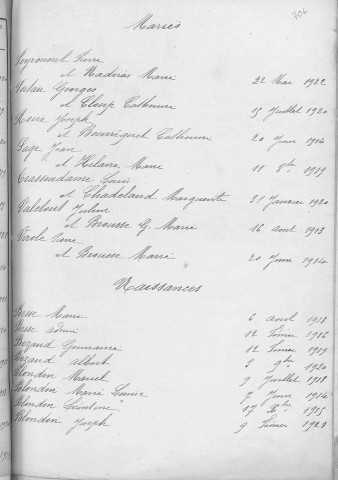 706
Mariés
Peyronnet Pierre
et Madrias Marie 22 Mai 1922
Georges
et Cloup Catherine 15 Juillet 1920
Joseph
et Bourriquet Catherine 20 Juin 1914
Sage Jean
et Hilaire Marie 11 8bre 1919
Crassoudaine Louis
et Chadeland Marguerite 31 Janvier 1920
Valetout Julien
et Brousse G. Marie 16 avril 1913
et Brousse Marie 20 Juin 1914
Naissances
Besse Marie 6 avril 1913
Besse 12 Février 1916
Bezaud Germaine 12 Février 1919
Bezaud Albert 5 9bre 1920
Blondin Marcel 9 Juillet 1913
Blondin Marie Louise 7 Juin 1914
Blondin 17 Xbre 1915
Blondin Joseph 9 Février 1921